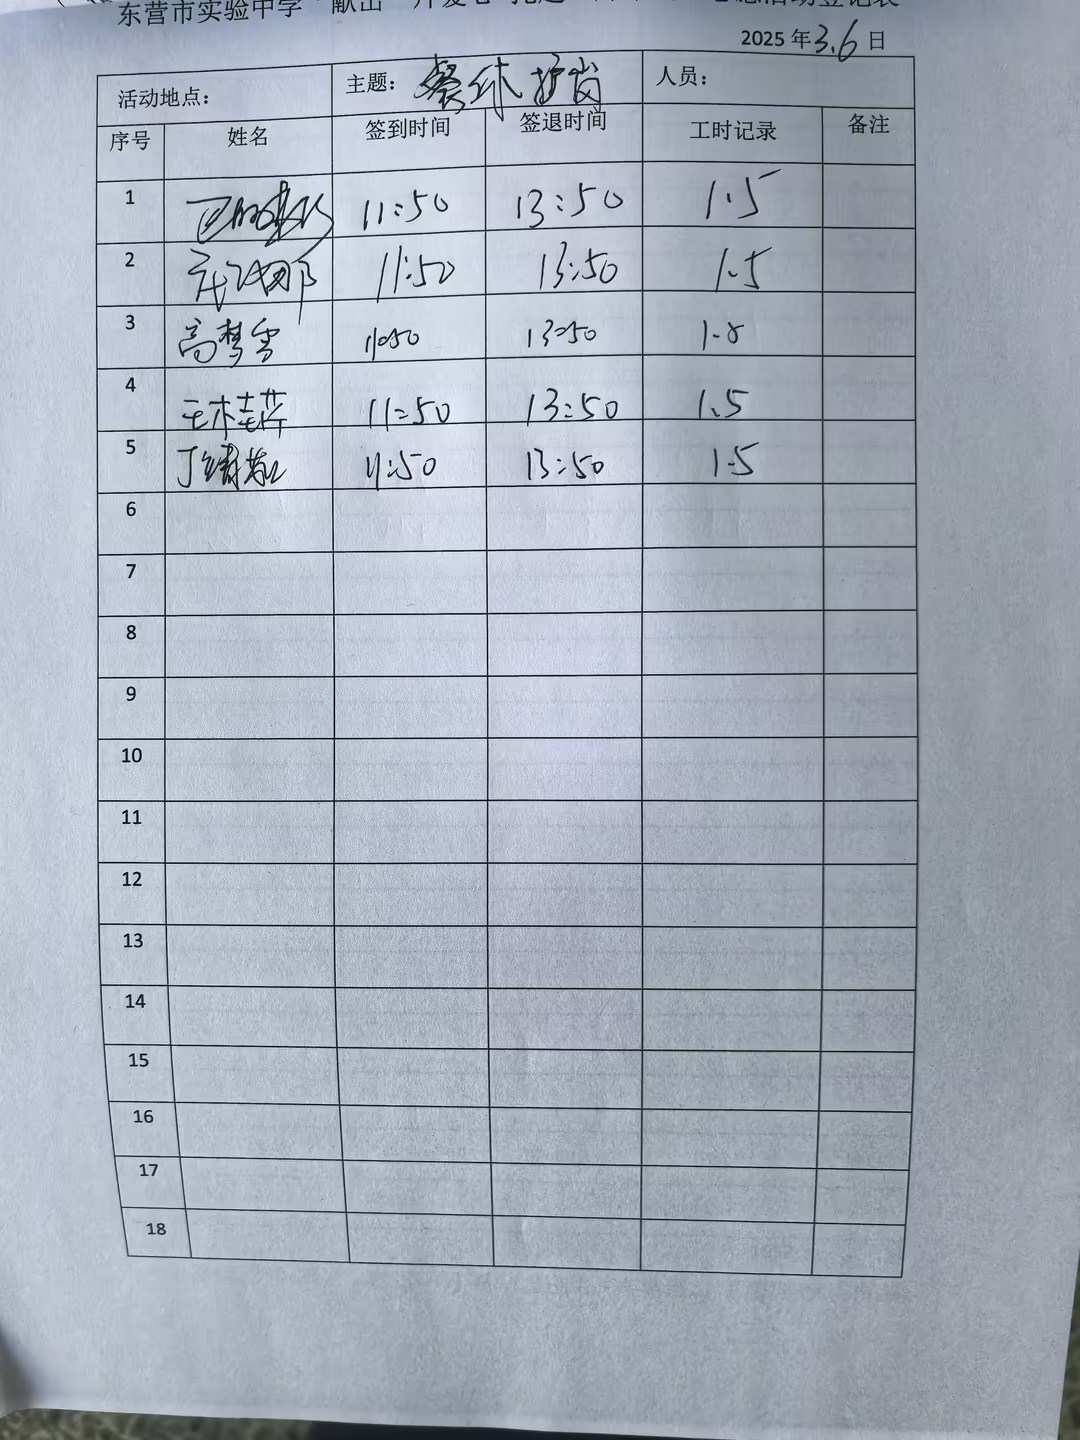 东营市实验中学"献出一片爱心
活动登记表
2025年3.6日
活动地点： 主题：餐休护岗 人员：
序号 姓名 签到时间 签退时间 工时记录 备注
1 11:50 13:50 1.5
2 11:50 13:50 1.5
3 高梦雪 11:50 13:50 1.5
4 王桂萍 11:50 13:50 1.5
5 丁 11:50 13:50 1.5
6
7
8
9
10
11
12
13
14
15
16
17
18